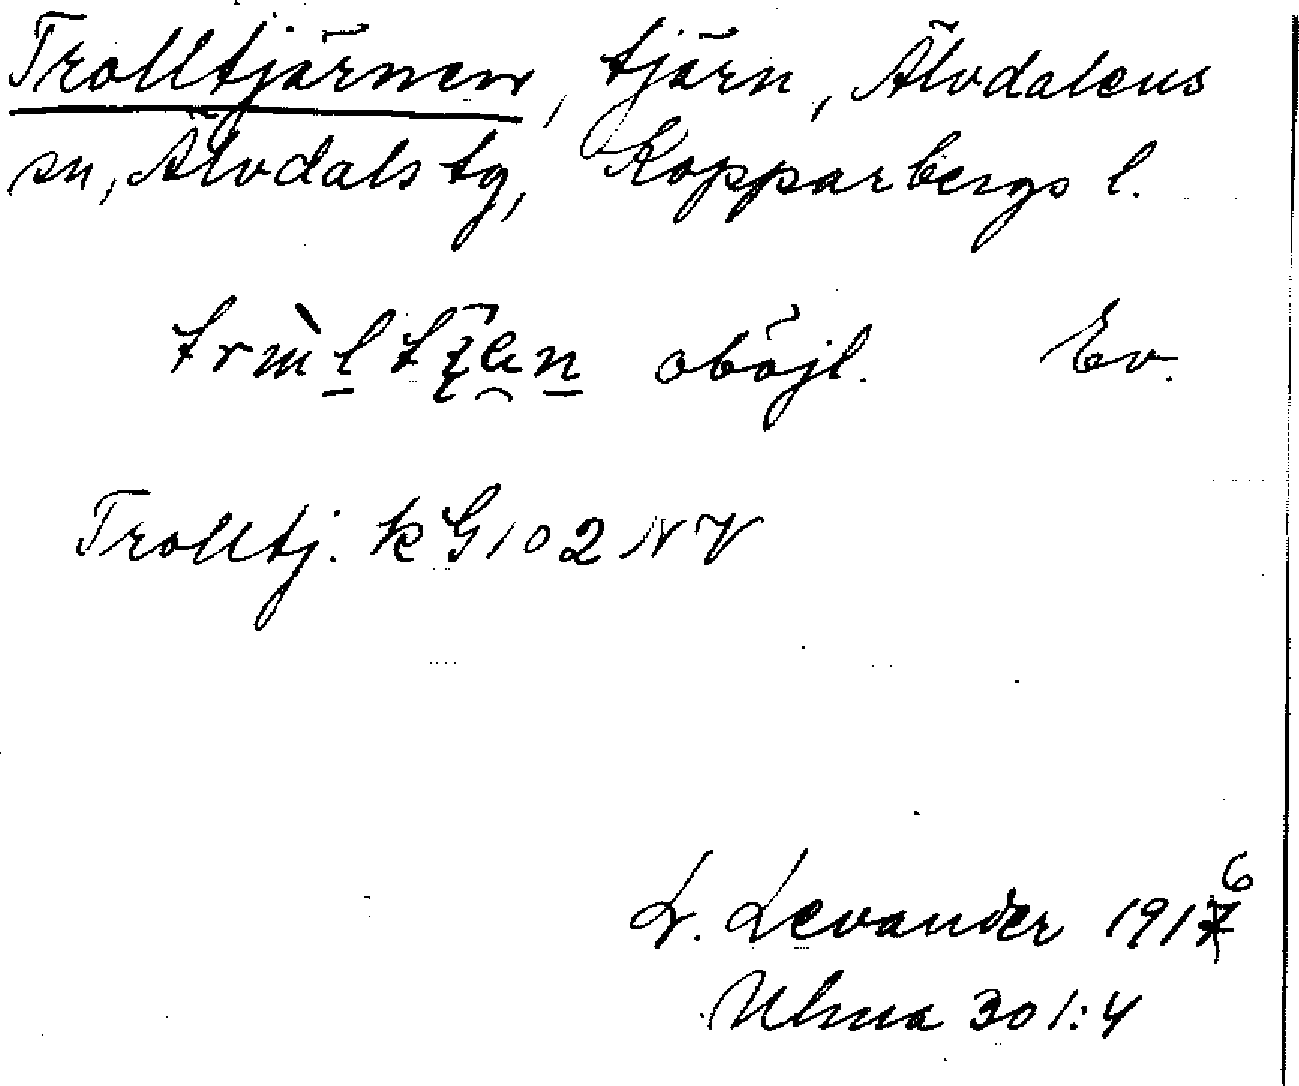 Trolltjärnen, tjärn, Älvdalens
sn, Älvdals tg, Kopparbergs l.
oböjl. Ev.
Trolltj. k G 102 NV
L. Levander 1916
Ulma 301:4